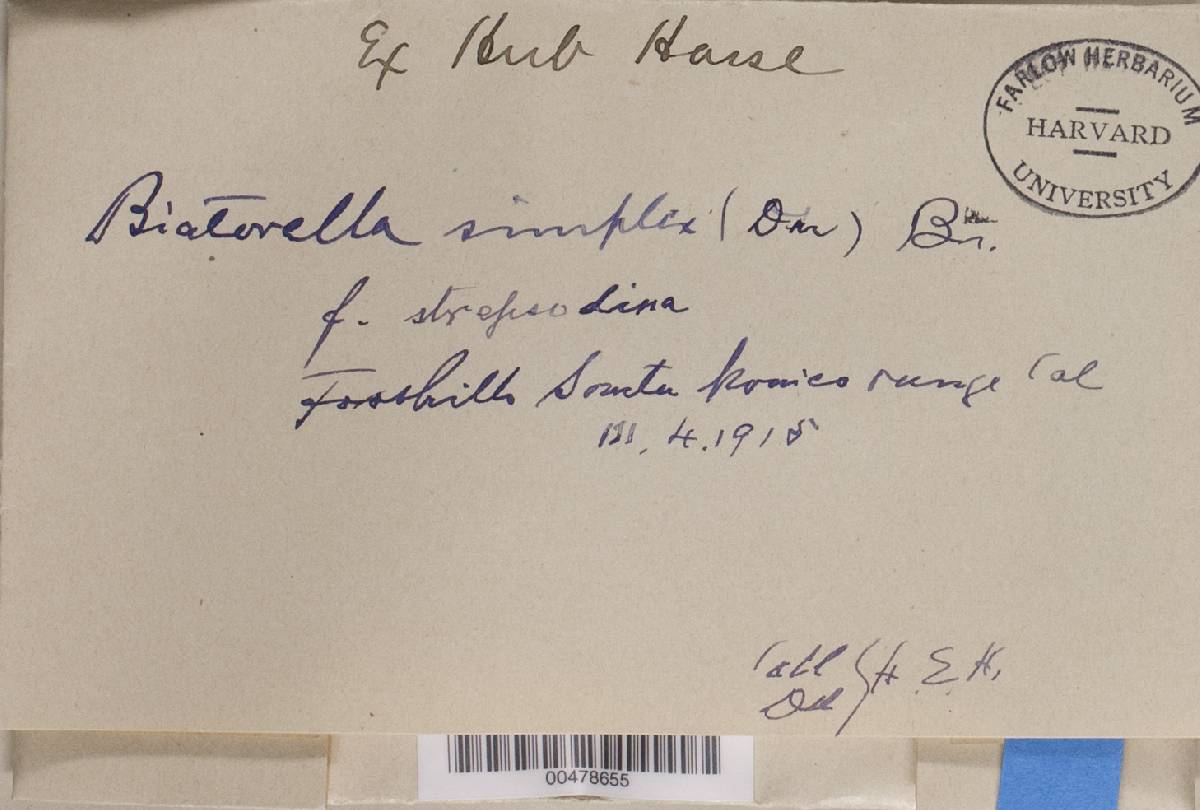 Ex Herb Hasse
FARLOW HERBARIUM
HARVARD
UNIVERSITY
Biatorella simplex (Dav) Br.
f. strepsodina
Foothills Santa Monica range Cal
III. 4. 1915
Coll
Det } H. E. H.
00478655